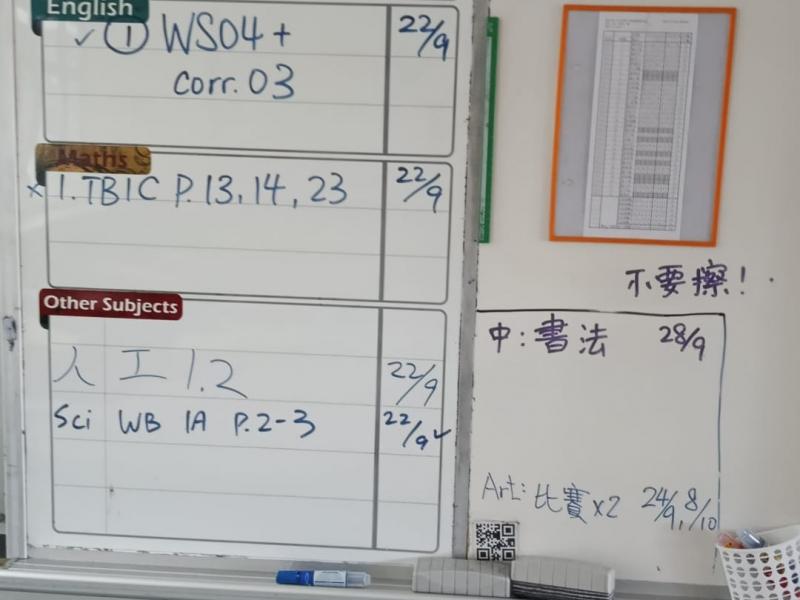 English
✓ ① WS04 + 22/9
corr. 03
Maths
× 1. TB1C P.13, 14, 23 22/9
Other Subjects
人 工 1.2 22/9
Sci WB 1A P.2-3 22/9 ✓
不要擦！
中：書法 28/9
Art: 比賽 x2 24/9, 8/10